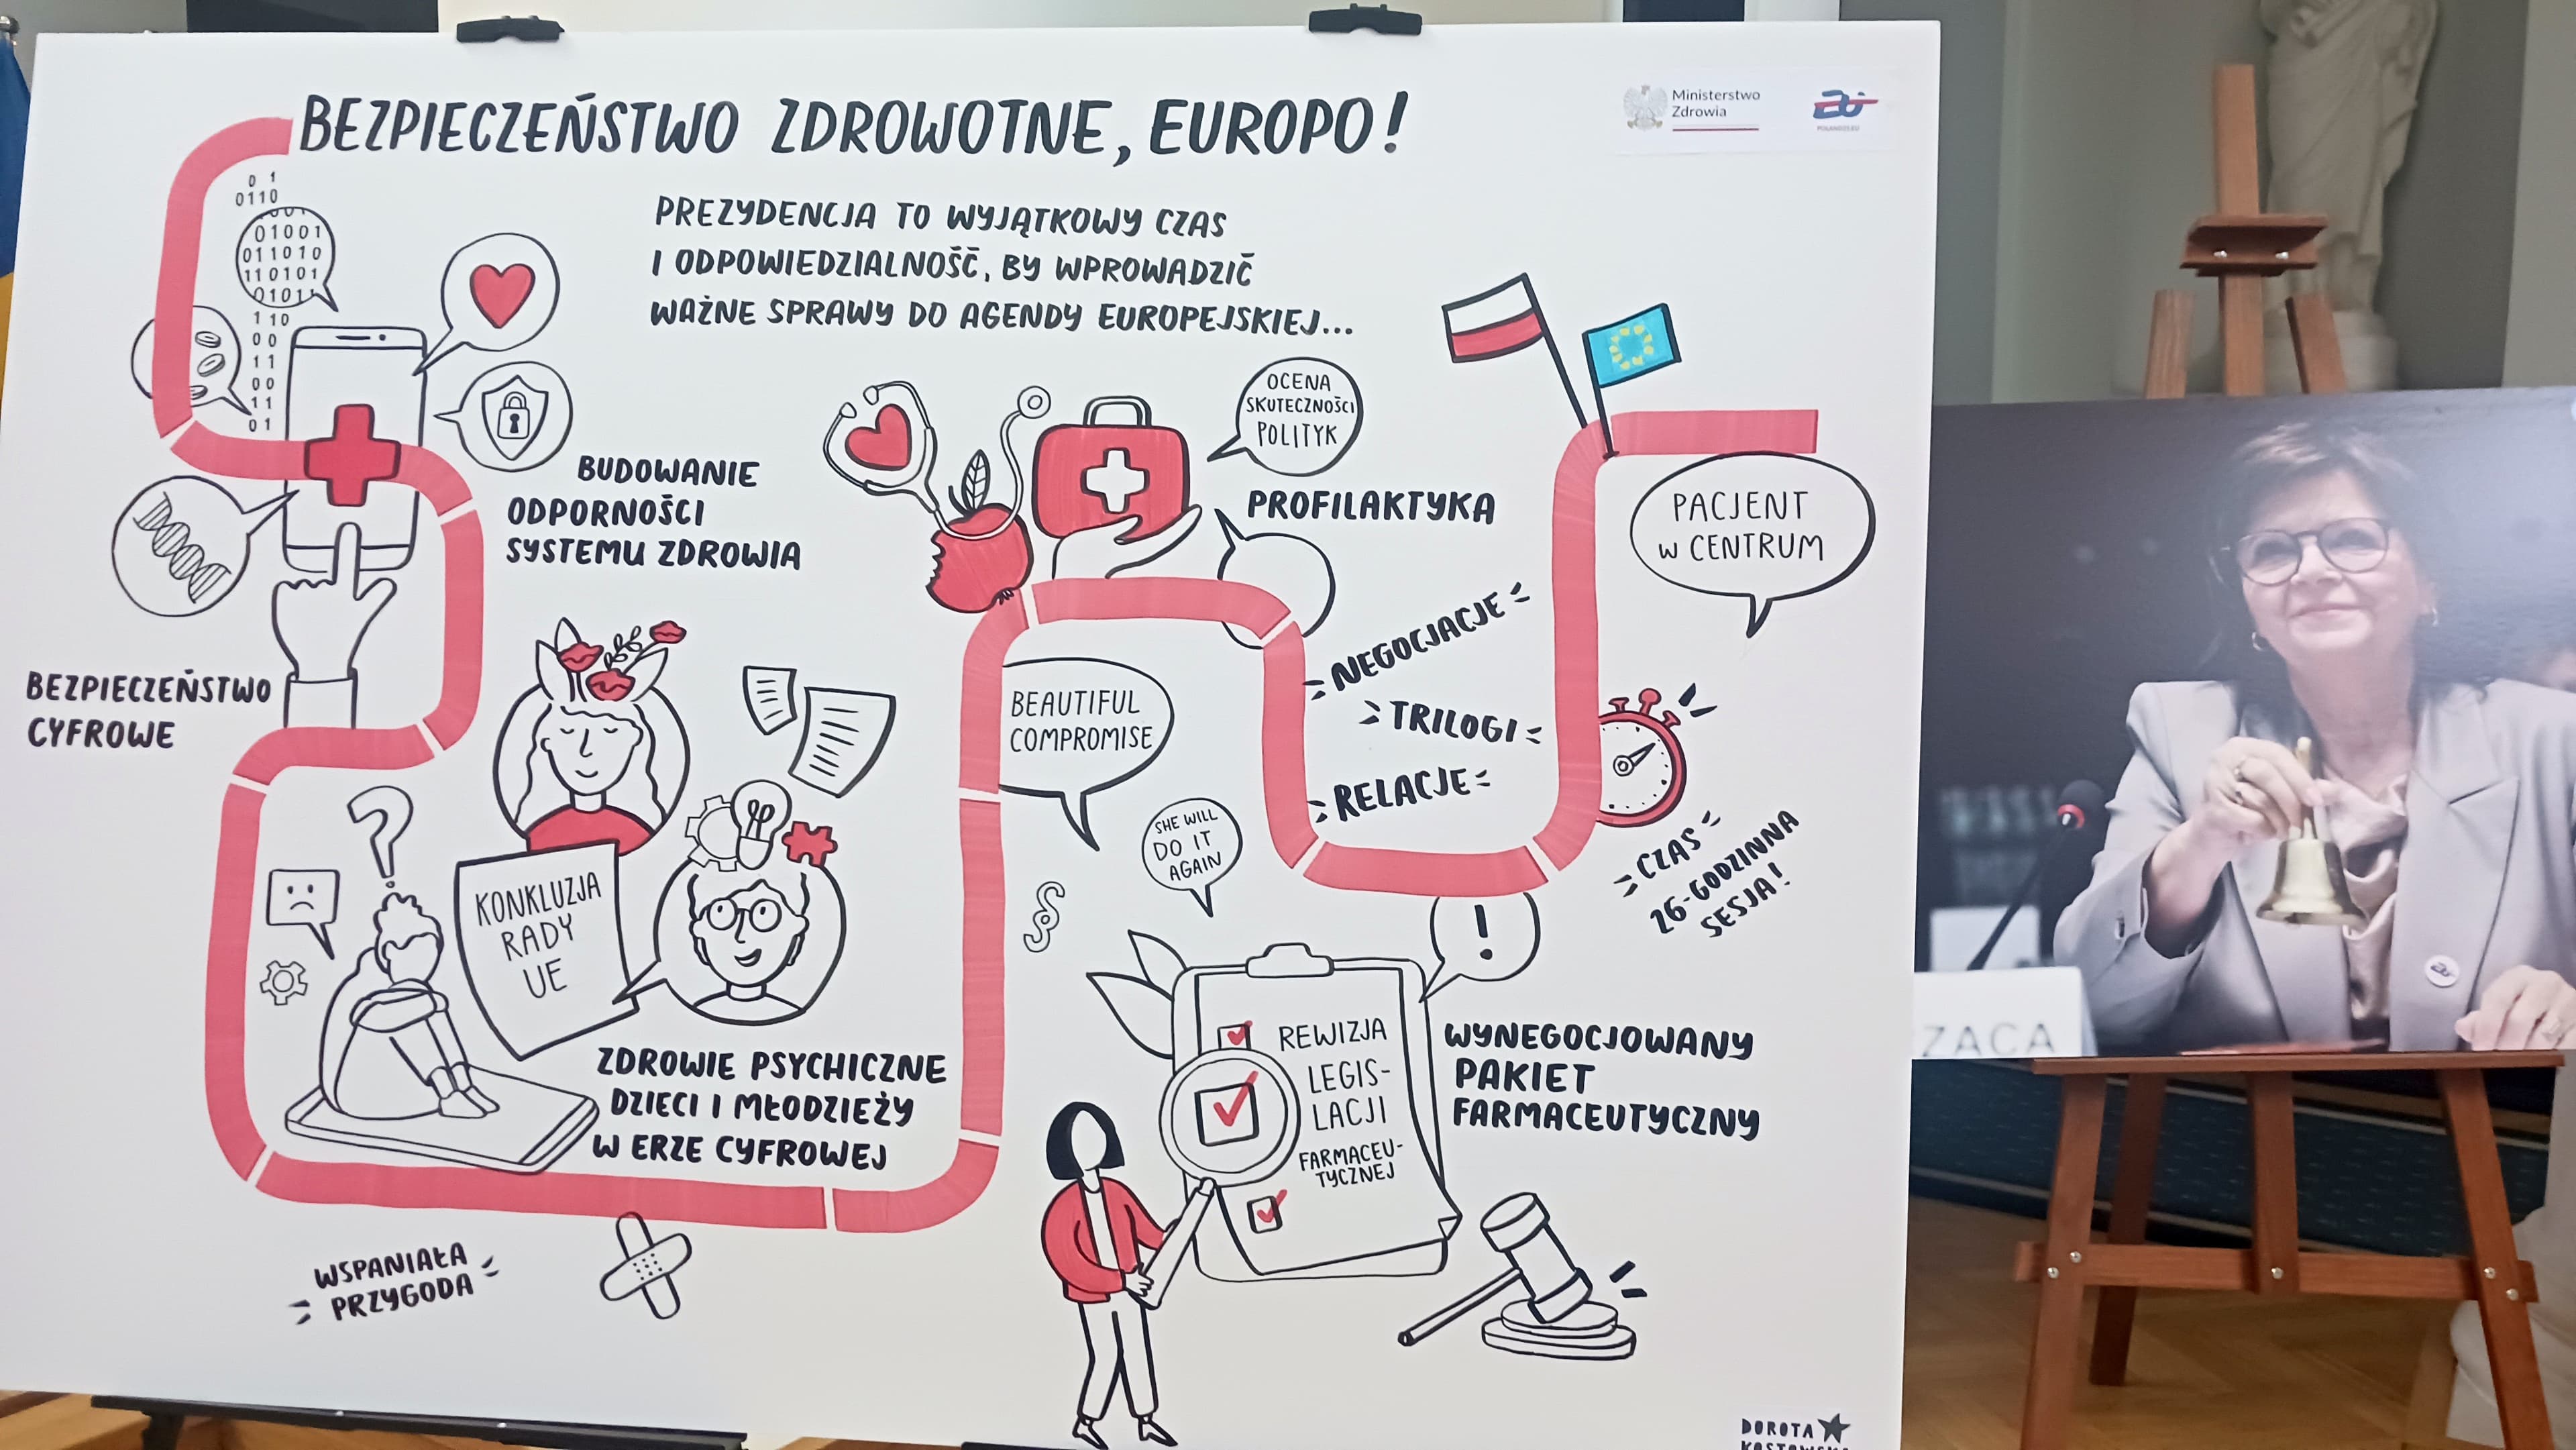 BEZPIECZEŃSTWO ZDROWOTNE, EUROPO!
Ministerstwo
Zdrowia
PREZYDENCJA TO WYJĄTKOWY CZAS
I ODPOWIEDZIALNOŚĆ, BY WPROWADZIĆ
WAŻNE SPRAWY DO AGENDY EUROPEJSKIEJ...
0 1
0110
01001
011010
110101
01011
1 10
0 0
1 1
0 0
1 1
0 1
BUDOWANIE
ODPORNOŚCI
SYSTEMU ZDROWIA
BEZPIECZEŃSTWO
CYFROWE
OCENA
SKUTECZNOŚCI
POLITYK
PROFILAKTYKA
PACJENT
W CENTRUM
NEGOCJACJE
TRILOGI
RELACJE
BEAUTIFUL
COMPROMISE
SHE WILL
DO IT
AGAIN
§
CZAS
26-GODZINNA
SESJA!
?
KONKLUZJA
RADY
UE
ZDROWIE PSYCHICZNE
DZIECI I MŁODZIEŻY
W ERZE CYFROWEJ
WSPANIAŁA
PRZYGODA
!
REWIZJA
LEGIS-
LACJI
FARMACEU-
TYCZNEJ
WYNEGOCJOWANY
PAKIET
FARMACEUTYCZNY
ZĄCA
DOROTA